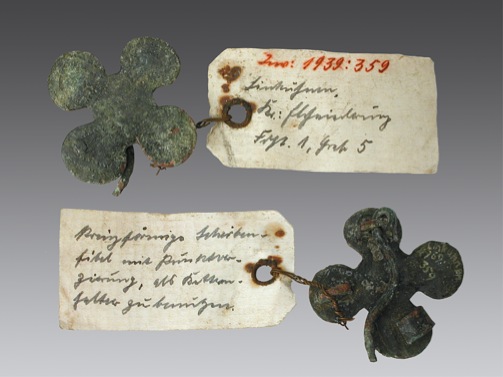 Inv: 1939:359
Linkuhnen,
Kr: Elchniederung
Frgt. 1, Grab 5
Kreuzförmige Scheiben-
fibel mit Punktver-
zierung, als Ketten-
halter zu benutzen.